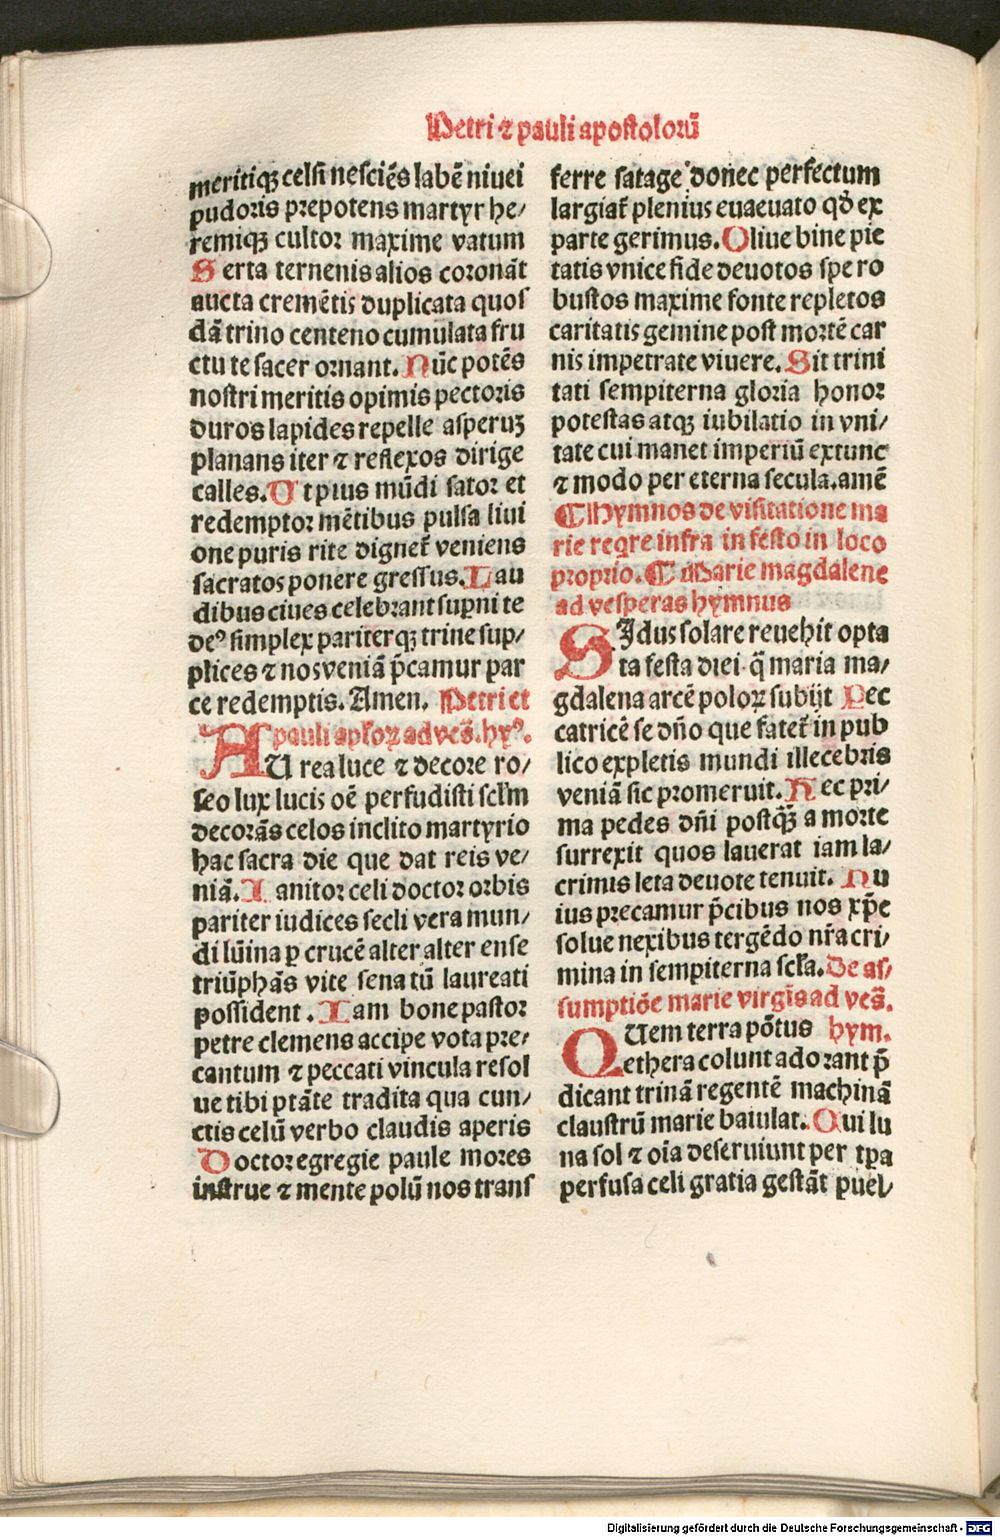 Petri ⁊ pauli apostolorū
meritiqꝫ celsi nesciēs labē niuei
pudoris prepotens martyr he/
remiqꝫ cultor maxime vatum
Serta ternenis alios coronāt
aucta cremētis duplicata quos
dā trino centeno cumulata fru
ctu te sacer ornant. Nūc potēs
nostri meritis opimis pectoris
duros lapides repelle asperuꝫ
planans iter ⁊ reflexos dirige
calles. Ut pius mūdi sator et
redemptor mētibus pulsa liui
one puris rite dignet̄ veniens
sacratos ponere gressus. Lau
dibus ciues celebrant suꝑni te
deꝰ simplex pariterqꝫ trine sup/
plices ⁊ nos veniā p̄camur par
ce redemptis. Amen. Petri et
pauli apl'oꝝ ad ves̄. hyꝰ.
AU rea luce ⁊ decore ro/
seo lux lucis oē perfudisti scl'm
decorās celos inclito martyrio
hac sacra die que dat reis ve/
niā. Ianitor celi doctor orbis
pariter iudices secli vera mun/
di lūina ꝑ crucē alter alter ense
triūphās vite sena tū laureati
possident. Iam bone pastor
petre clemens accipe vota pre/
cantum ⁊ peccati vincula resol
ue tibi ptāte tradita qua cun/
ctis celū verbo claudis aperis
Doctor egregie paule mores
instrue ⁊ mente polū nos trans
ferre satage donec perfectum
largiat̄ plenius euaeuato qd̄ ex
parte gerimus. Oliue bine pie
tatis vnice fide deuotos spe ro
bustos maxime fonte repletos
caritatis gemine post mortē car
nis impetrate viuere. Sit trini
tati sempiterna gloria honor
potestas atqꝫ iubilatio in vni/
tate cui manet imperiū extunc
⁊ modo per eterna secula. amē
¶ Hymnos de visitatione ma
rie reqre infra in festo in loco
proprio. ¶ Marie magdalene
ad vesperas hymnus
SIdus solare reuehit opta
ta festa diei q̄ maria ma/
gdalena arcē poloꝝ subijt Pec
catricē se dn̄o que fatet̄ in pub
lico expletis mundi illecebris
veniā sic promeruit. Hec pri/
ma pedes dn̄i postq̄ꝫ a morte
surrexit quos lauerat iam la/
crimis leta deuote tenuit. Hu
ius precamur p̄cibus nos xp̄e
solue nexibus tergēdo nr̄a cri/
mina in sempiterna scl'a. De as/
sumptiōe marie virgīs ad ves̄.
QUem terra pōtus hym.
ethera colunt adorant p̄
dicant trinā regentē machinā
claustrū marie baiulat. Qui lu
na sol ⁊ oīa deseruiunt per tꝑa
perfusa celi gratia gestāt puel/
Digitalisierung gefördert durch die Deutsche Forschungsgemeinschaft - DFG